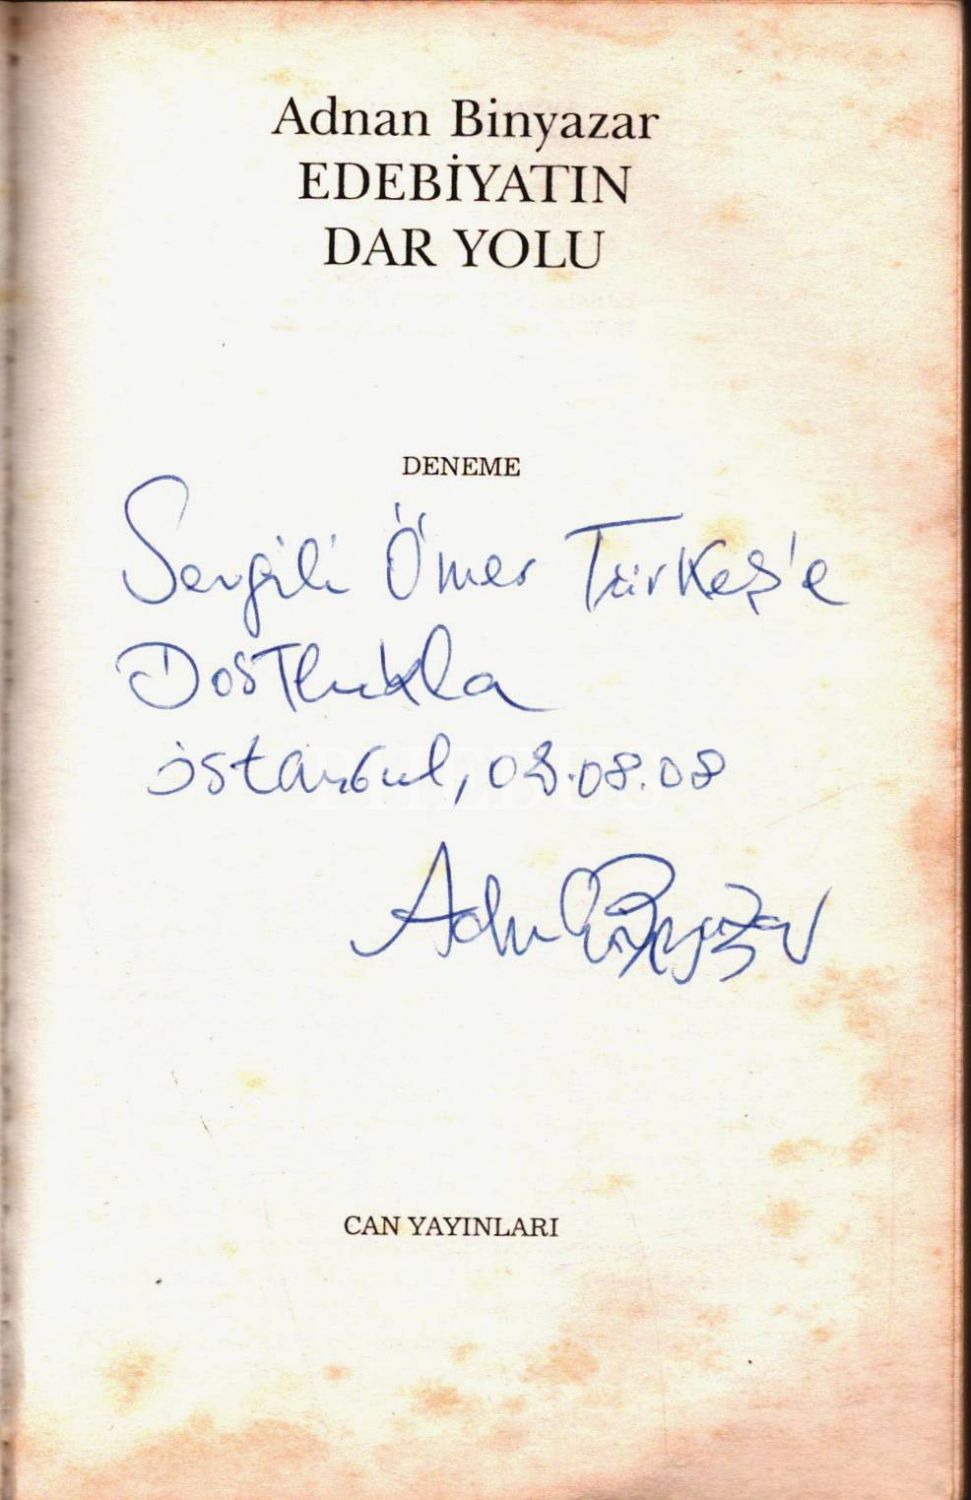 Adnan Binyazar
EDEBİYATIN
DAR YOLU
DENEME
Sevgili Ömer Türkeş'e
Dostlukla
İstanbul, 08.08.08
Adnan Binyazar
CAN YAYINLARI